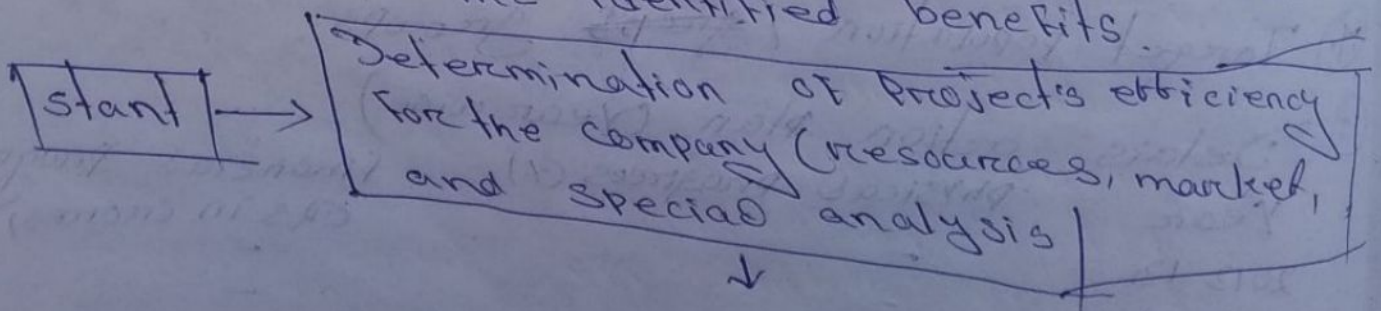 identified benefits.
Determination of Project's efficiency
start
for the company (resources, market,
and special analysis